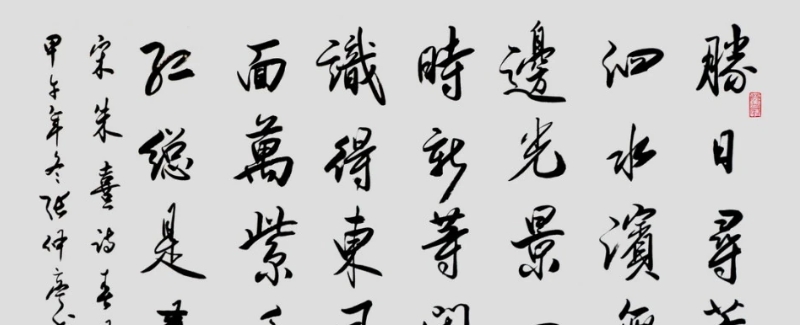 勝日尋
泗水濱無
邊光景一
時新等
識得東
面萬紫千
紅總是春
宋朱熹詩春
甲午年冬張仲亭